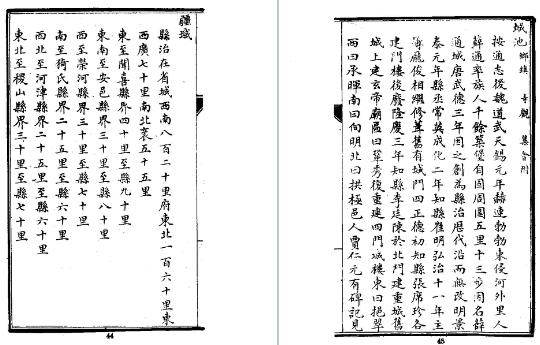 疆域
縣治在省城西南八百二十里府東北一百六十里東
西廣七十里南北袤五十五里
東至聞喜縣界四十里至縣九十里
東南至安邑縣界三十里至縣八十里
西至榮河縣界三十里至縣七十里
南至猗氏縣界二十五里至縣六十里
西北至河津縣界二十五里至縣六十里
東北至稷山縣界三十里至縣七十里
44
城池 鄉鎮 寺觀 集會附
按通志後魏道武天錫元年赫連勃勃東侵河外里人
薛通率族人千餘築堡自固周圍五里十三步因名薛
通城唐武德三年因之創為縣治歷代治而無改明景
泰元年縣丞常英成化二年知縣崔明弘治十一年主
簿龐俊相繼修葺舊有城門四正德初知縣張席珍各
建門樓後廢隆慶三年知縣李廷陳於北門建重城舊
城上建玄帝廟匾曰鞏秀復重建四門城樓東曰挹翠
西曰承暉南曰向明北曰拱極邑人賈仁元有碑記見
45